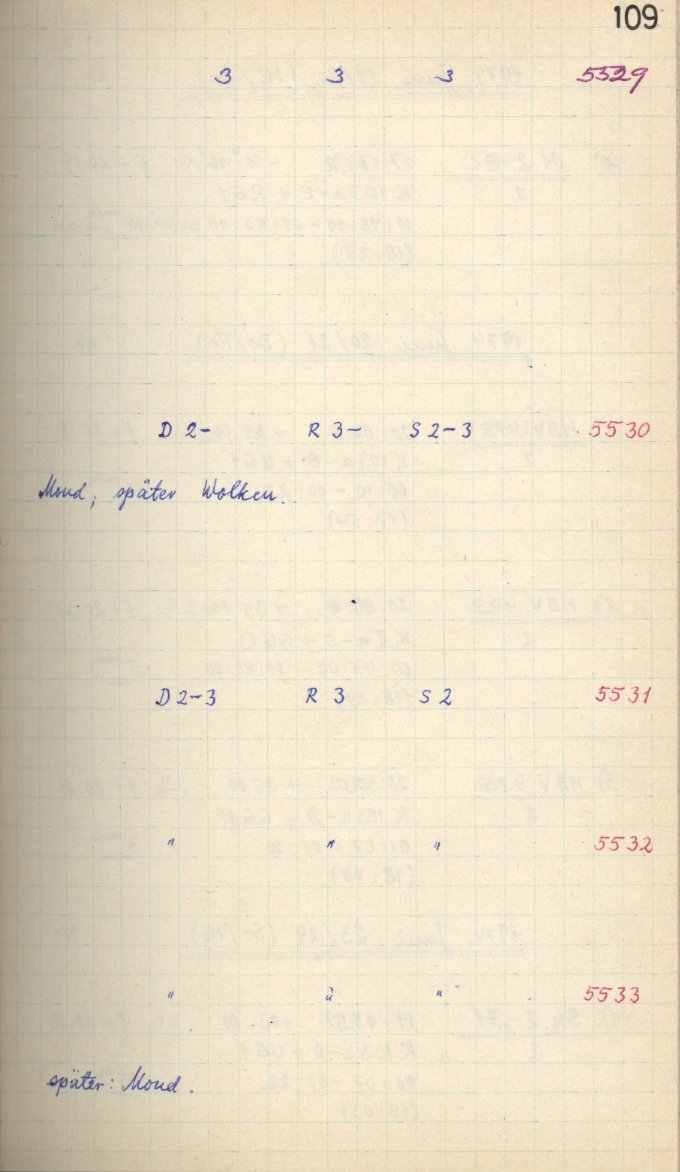 109
3 3 3 5529
D 2- R 3- S 2-3 5530
Mond, später Wolken.
D 2-3 R 3 S 2 5531
" " " 5532
" " " 5533
später: Mond.